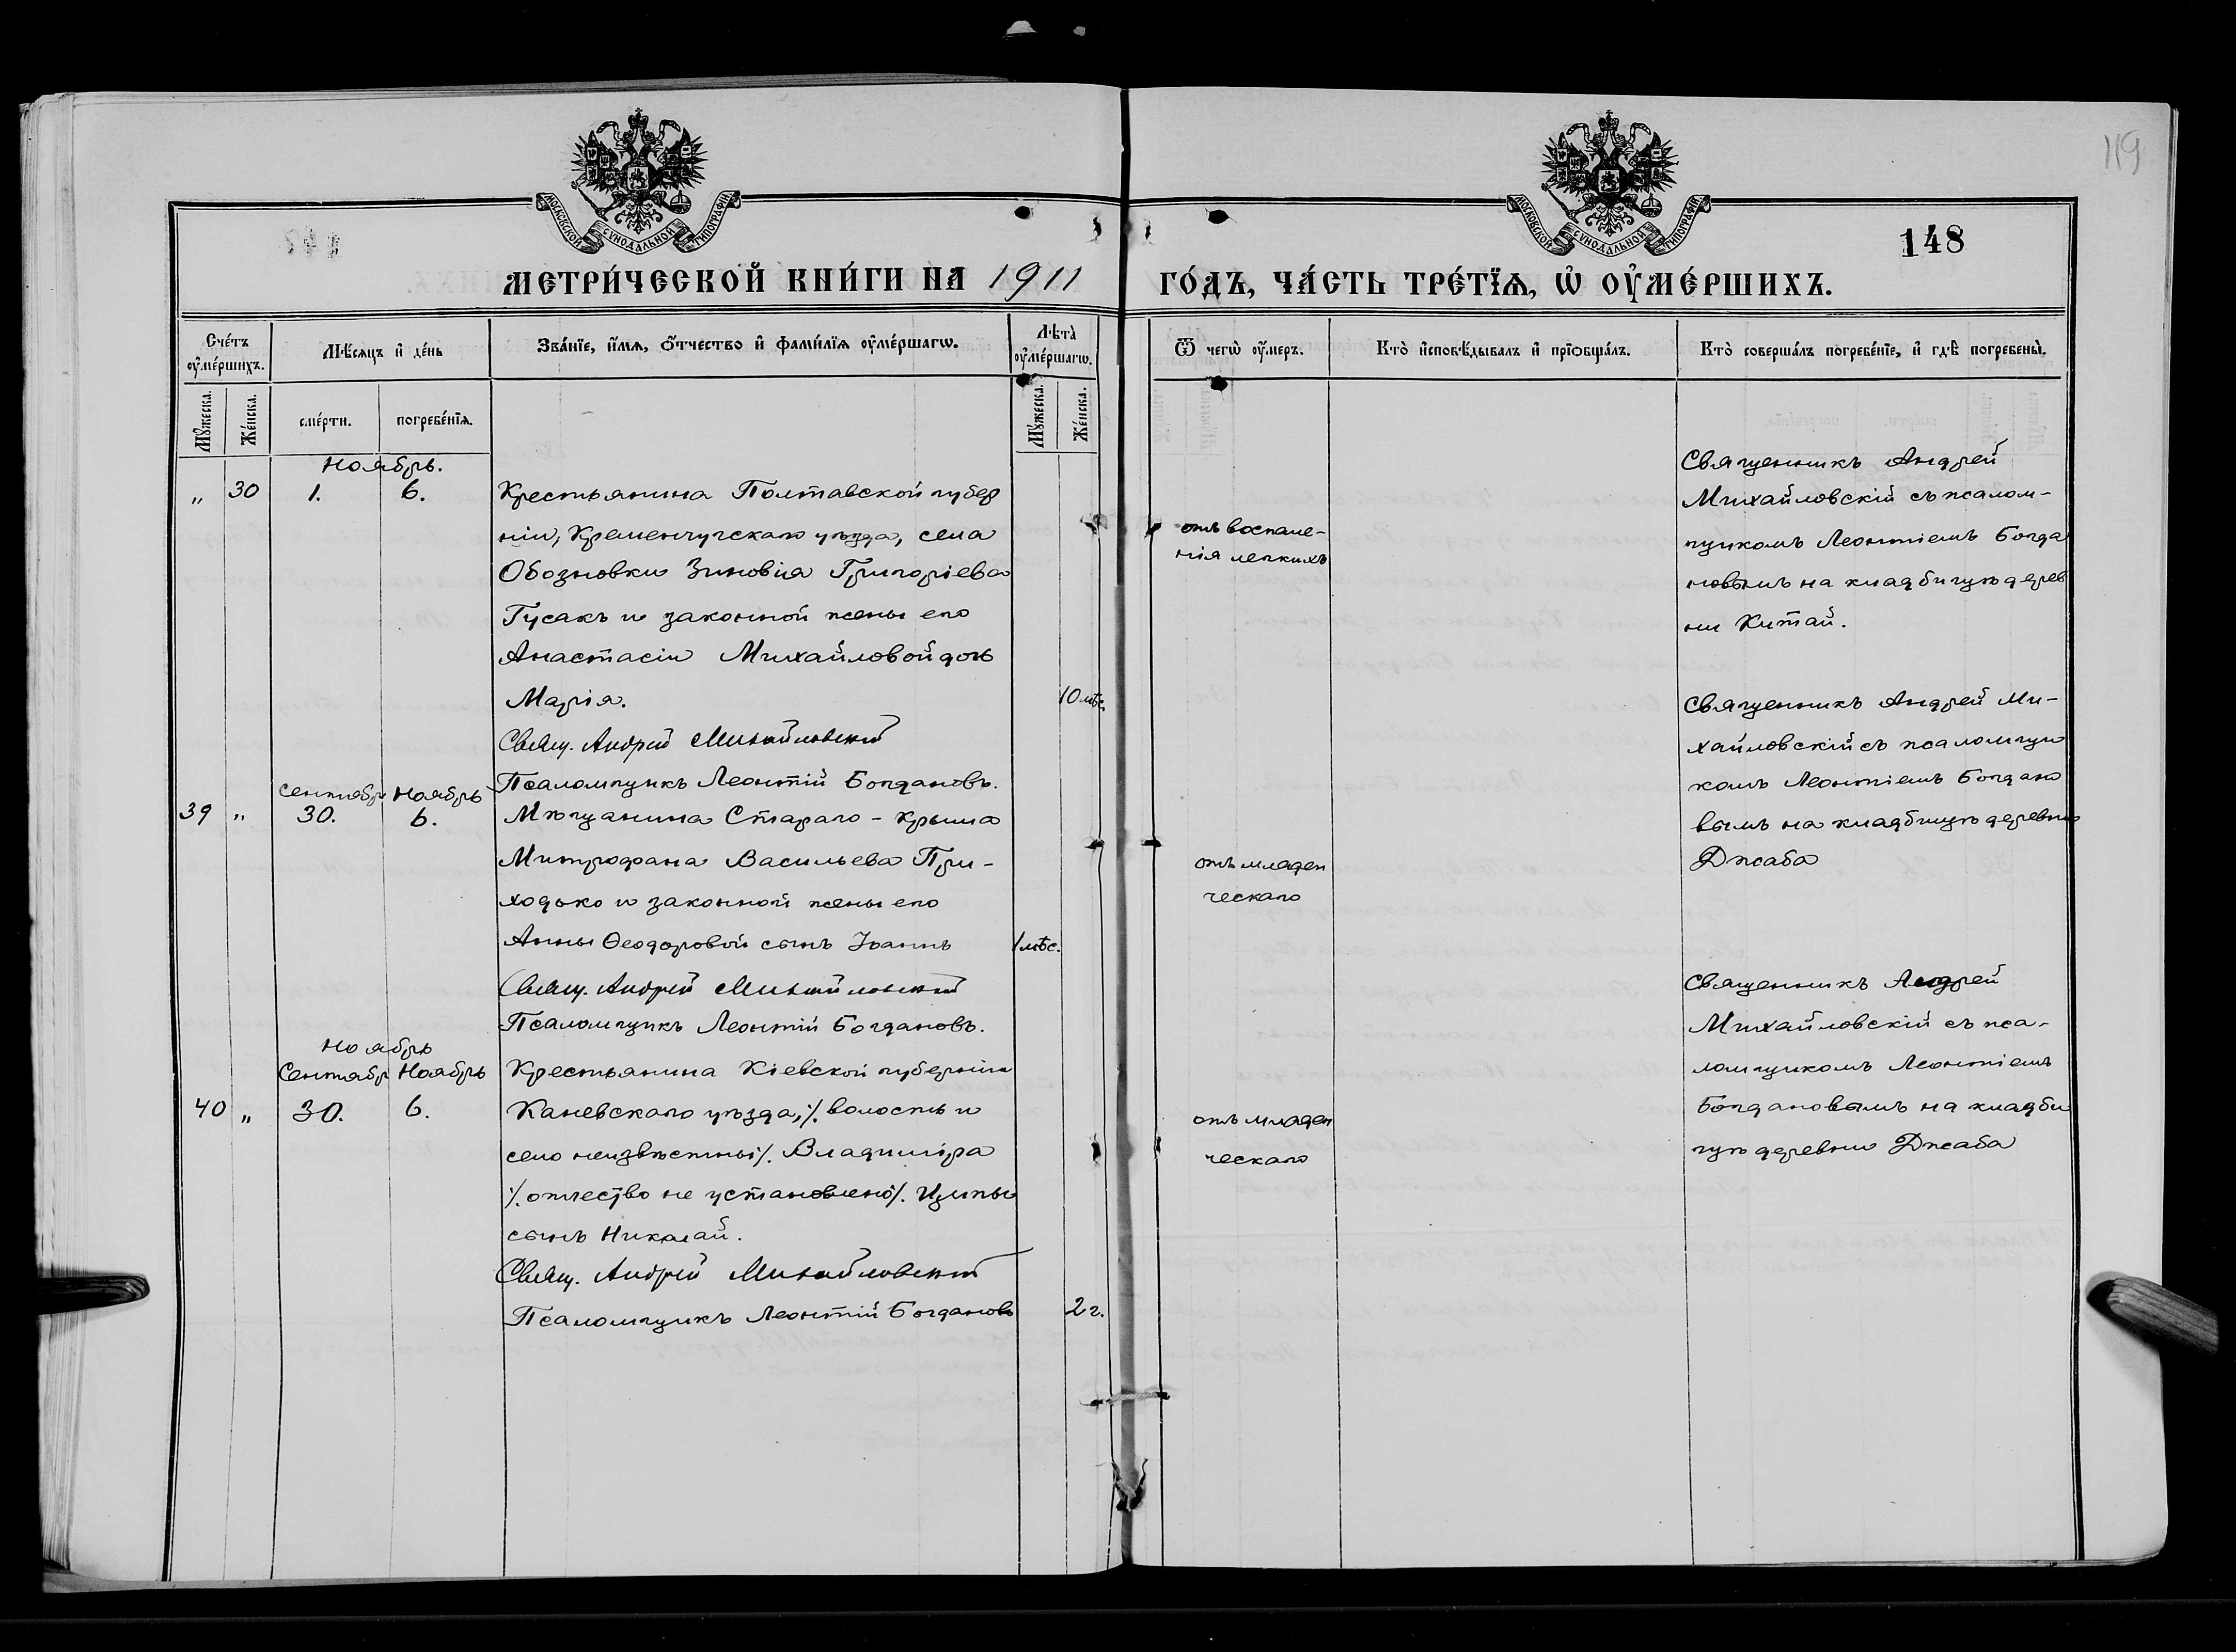 119
148
МОСКОВСКОЙ СѴНОДАЛЬНОЙ ТИПОГРАФІИ
МОСКОВСКОЙ СѴНОДАЛЬНОЙ ТИПОГРАФІИ
МЕТРИ́ЧЕСКОЙ КНИ́ГИ НА 1911 ГО́ДЪ, ЧА́СТЬ ТРЕ́ТЇѦ, Ѡ҆ ОУ҆МЕ́РШИХЪ.
Сче́тъ оу҆ме́ршихъ.
Мѣ́сѧцъ и҆ де́нь
Зва́нїе, и҆́мѧ, ѻ҆́тчество и҆ фами́лїѧ оу҆ме́ршагѡ.
Лѣ̀та оу҆ме́ршагѡ.
Ѿ чегѡ̀ оу҆́меръ.
Кто̀ и҆сповѣ́дывалъ и҆ прїѡбща́лъ.
Кто̀ соверша́лъ погребе́нїе, и҆ гдѣ̀ погребены̀.
Мꙋ́жеска.
Же́нска.
сме́рти.
погребе́нїѧ.
Мꙋ́жеска.
Же́нска.
Ноябрь.
" 30 1. 6.
Крестьянина Полтавской губер
ніи, Кременчугскаго уѣзда, села
Обозновки Зиновія Григоріева
Гусакъ и законной жены его
Анастасіи Михайловой дочь
Марія.
10 мѣс.
Свящ. Андрей Михайловскій
Псаломщикъ Леонтій Богдановъ.
отъ воспале-
нія легкихъ
Священникъ Андрей
Михайловскій съ псалом-
щикомъ Леонтіемъ Богда
новымъ на кладбищѣ дерев
ни Китай.
Сентябрь Ноябрь
39 " 30. 6.
Мѣщанина Стараго-Крыма
Митрофана Васильева При-
ходько и законной жены его
Анны Ѳеодоровой сынъ Іоаннъ
1 мѣс.
Свящ. Андрей Михайловскій
Псаломщикъ Леонтій Богдановъ.
отъ младен
ческаго
Священникъ Андрей Ми-
хайловскій съ псаломщи
комъ Леонтіемъ Богдано
вымъ на кладбищѣ деревни
Джаба
Ноябрь
Сентябр Ноябрь
40 " 30. 6.
Крестьянина Кіевской губерніи
Каневскаго уѣзда, ·/. волость и
село неизвѣстны ·/. Владиміра
·/. отчество не установлено ·/.
сынъ Николай.
Свящ. Андрей Михайловскій
Псаломщикъ Леонтій Богдановъ
2 г.
отъ младен
ческаго
Священникъ Андрей
Михайловскій съ пса-
ломщикомъ Леонтіемъ
Богдановымъ на кладби
щѣ деревни Джаба